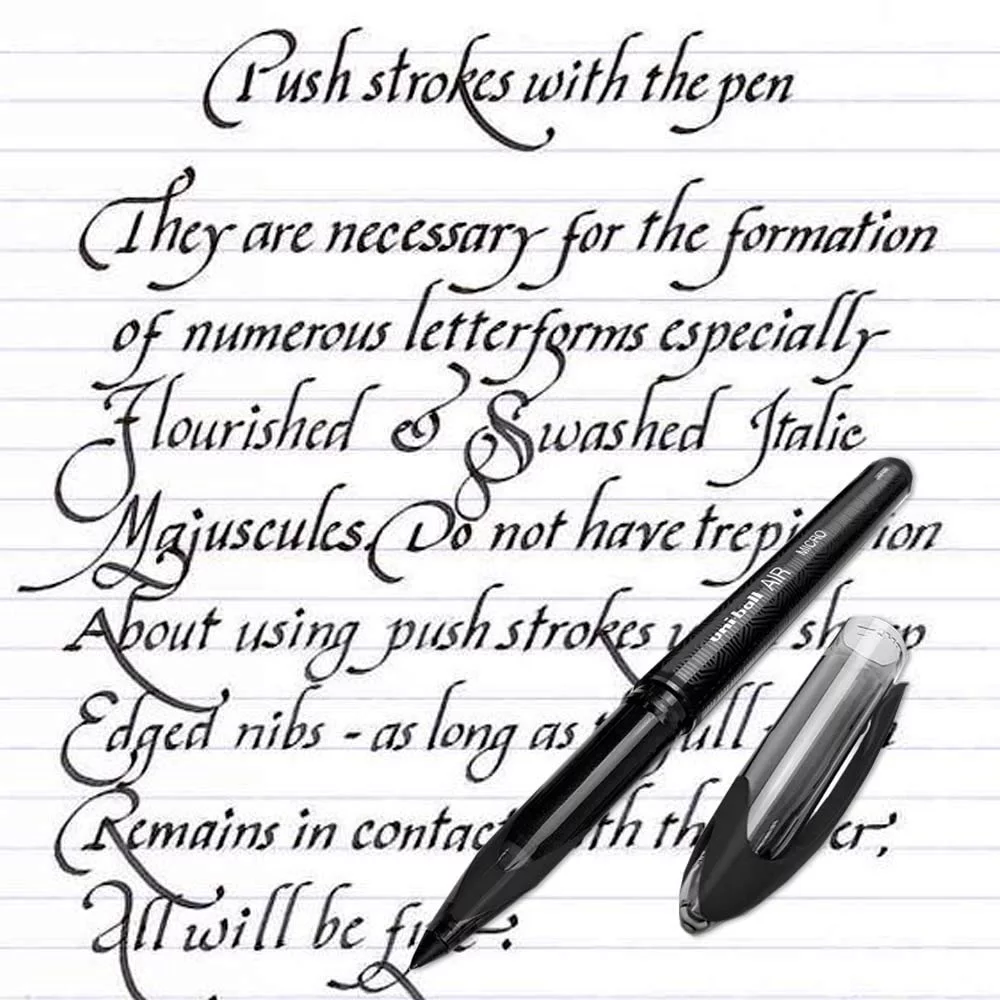 Push strokes with the pen
They are necessary for the formation
of numerous letterforms especially
Flourished & Swashed Italic
Majuscules. Do not have
About using push strokes
Edged nibs - as long as
Remains in
All will be
uniball AIR MICRO